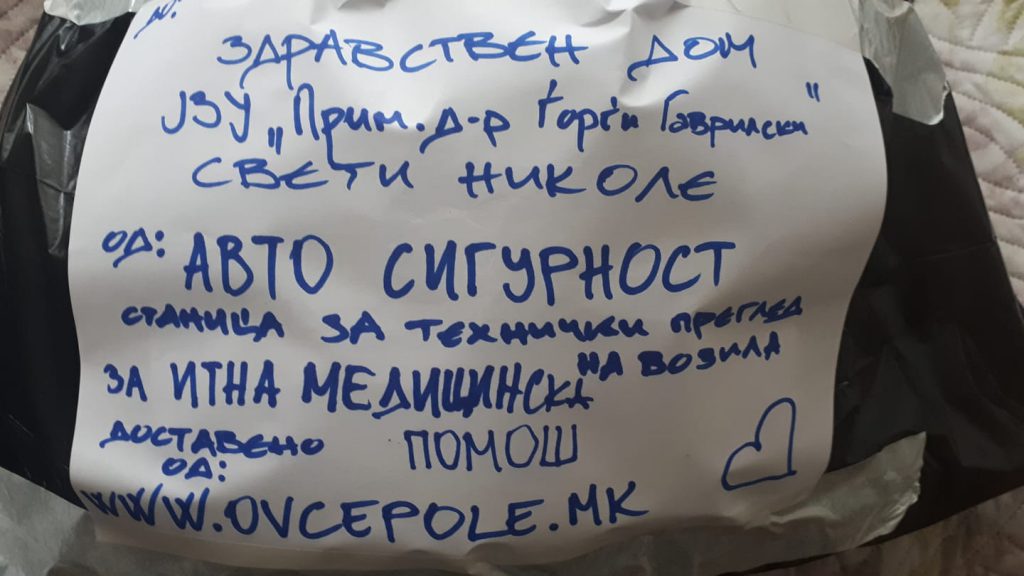 до:
ЗДРАВСТВЕН ДОМ
ЈЗУ „Прим. д-р Ѓорѓи Гаврилски"
СВЕТИ НИКОЛЕ
ОД: АВТО СИГУРНОСТ
СТАНИЦА ЗА ТЕХНИЧКИ ПРЕГЛЕД
НА ВОЗИЛА
ЗА ИТНА МЕДИЦИНСКА
ПОМОШ
ДОСТАВЕНО
ОД:
WWW.OVCEPOLE.MK